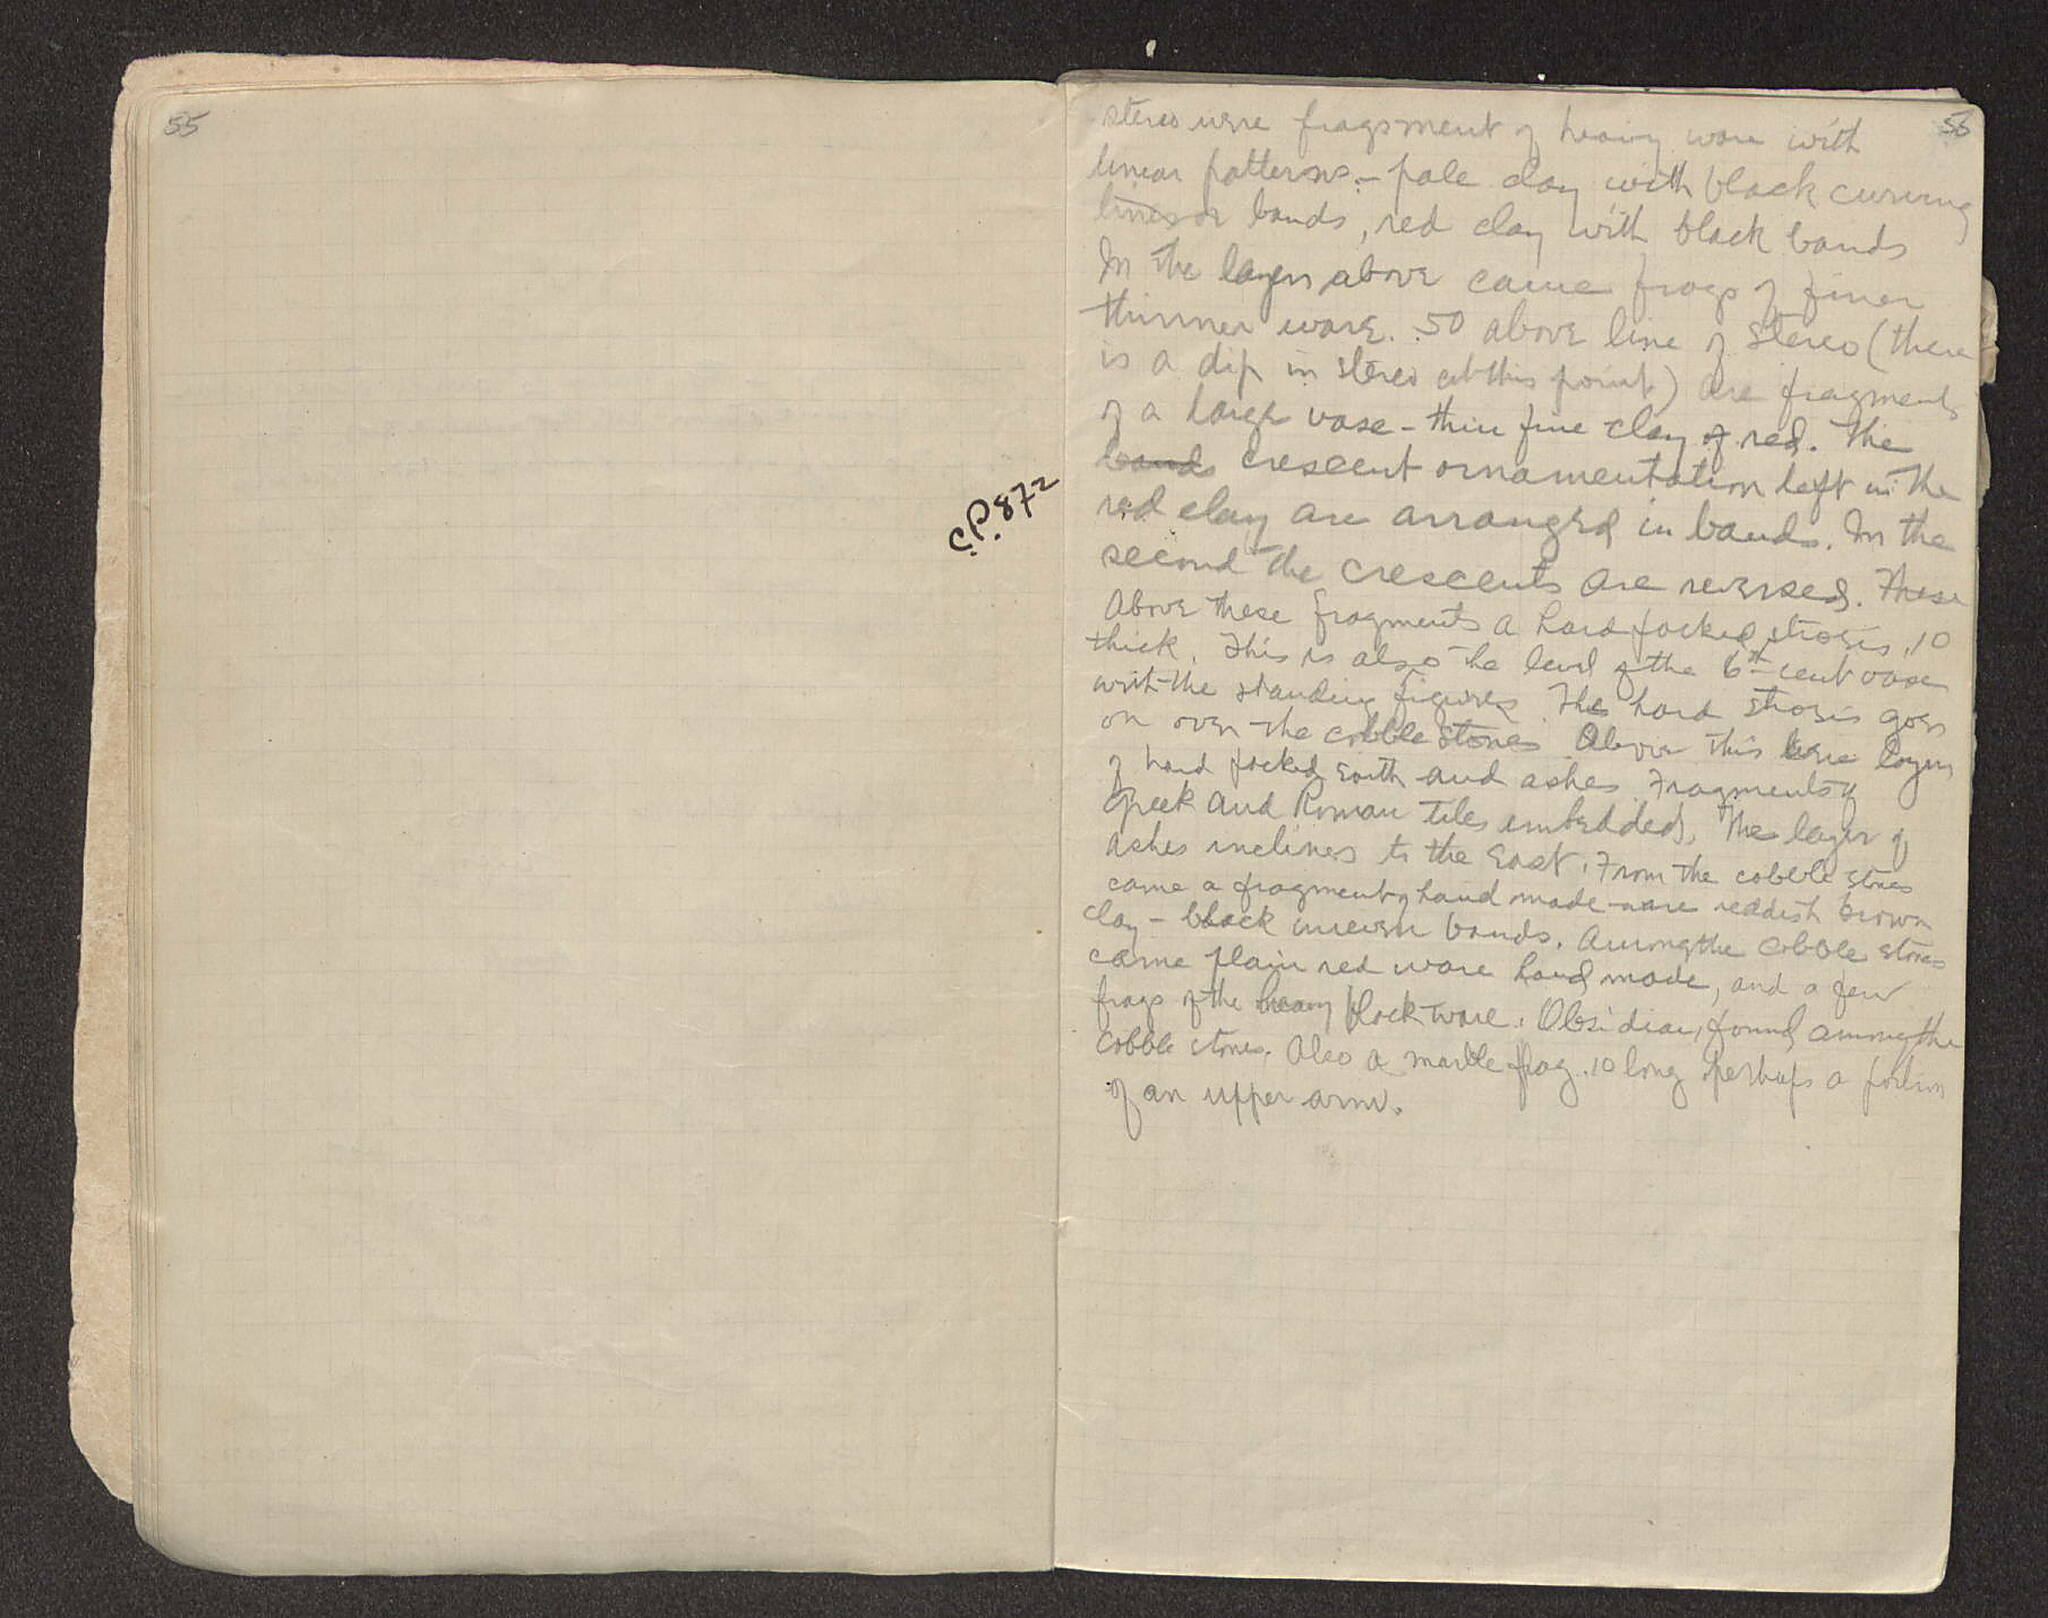 55
C.P. 872
56
stereo were fragsment of heavy ware with
linear patterns:- pale clay with black curving
lines or bands, red clay with black bands
In the layer above came frags of finer
thinner ware. .50 above line of stereo (there
is a dip in stereo at this point) are fragments
of a large vase - thin fine clay of red. The
bands crescent ornamentation left in the
red clay are arranged in bands. In the
second the crescents are reversed. These
Above these fragments a hard packed strosis .10
thick. This is also the level of the 6th cent vase
with the standing figures. The hard strosis goes
on over the cobble stones. Above this were layers
of hard packed earth and ashes. Fragments of
Greek and Roman tiles embedded. The layer of
ashes inclines to the East. From the cobble stones
came a fragment of hand made ware reddish brown
clay - black uneven bands. Among the cobble stones
came plain red ware hand made, and a few
frags of the heavy black ware. Obsidian found among the
cobble stones. Also a marble frag .10 long perhaps a portion
of an upper arm.